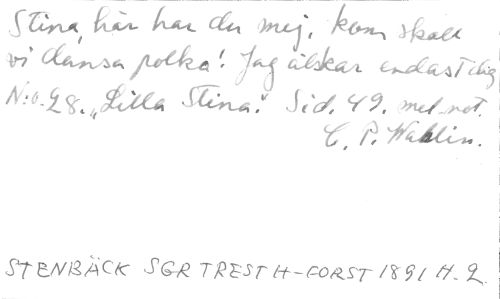 Stina, här har du mej, kom skall
vi dansa polka! Jag älskar endast dig
N:o 28. „Lilla Stina". Sid. 49. mel. not.
C. P. Wahlin.
STENBÄCK SGR TREST H-FORST 1891 H. 2